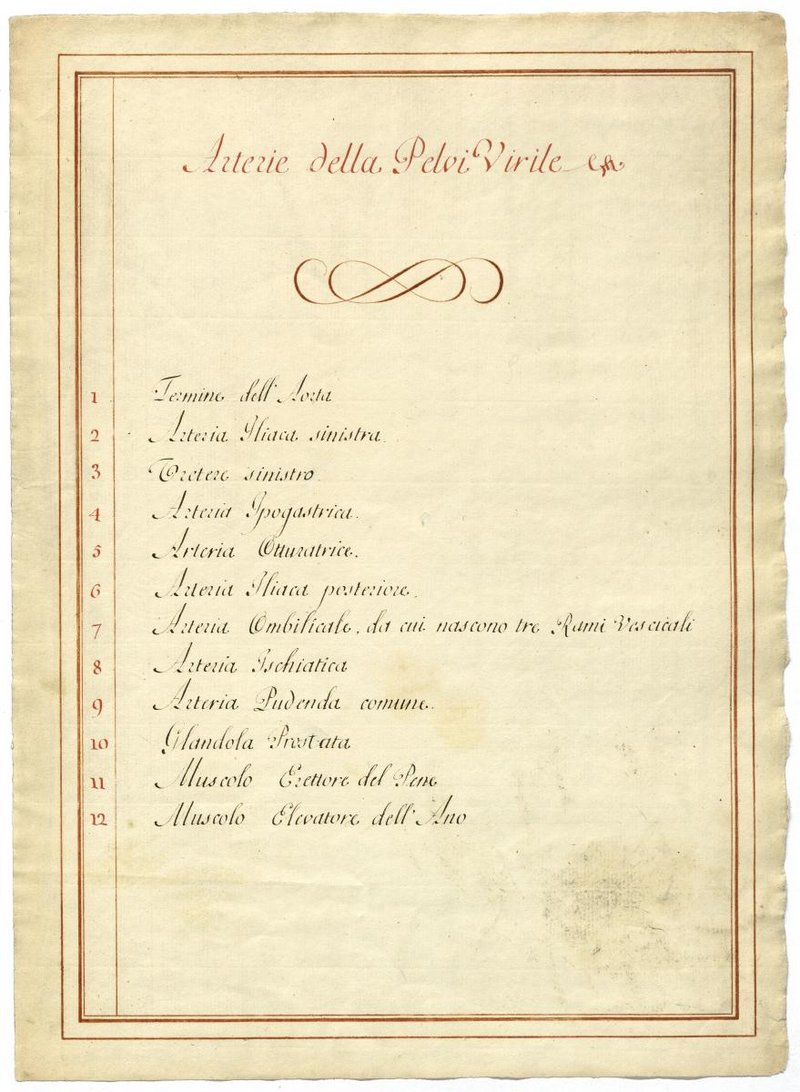 Arterie della Pelvi Virile
1 Termine dell'Aorta
2 Arteria Iliaca sinistra.
3 Uretere sinistro.
4 Arteria Ipogastrica.
5 Arteria Otturatrice.
6 Arteria Iliaca posteriore.
7 Arteria Ombilicale, da cui nascono tre Rami Vescicali
8 Arteria Ischiatica
9 Arteria Pudenda comune.
10 Glandola Prostata
11 Muscolo Erettore del Pene
12 Muscolo Elevatore dell'Ano